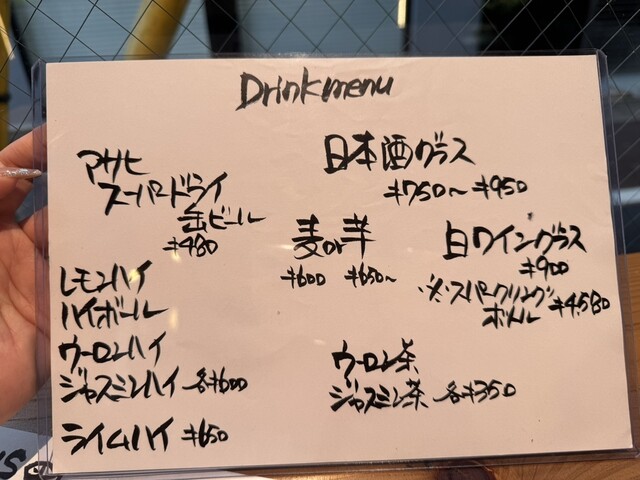 Drinkmenu
アサヒ
スーパードライ
缶ビール
¥480
レモンハイ
ハイボール
ウーロンハイ
ジャスミンハイ 各¥600
ライムハイ ¥650
日本酒グラス
¥750~¥950
麦or芋
¥600 ¥650~
白ワイングラス
¥900
※スパークリング
ボトル ¥4,580
ウーロン茶
ジャスミン茶 各¥350